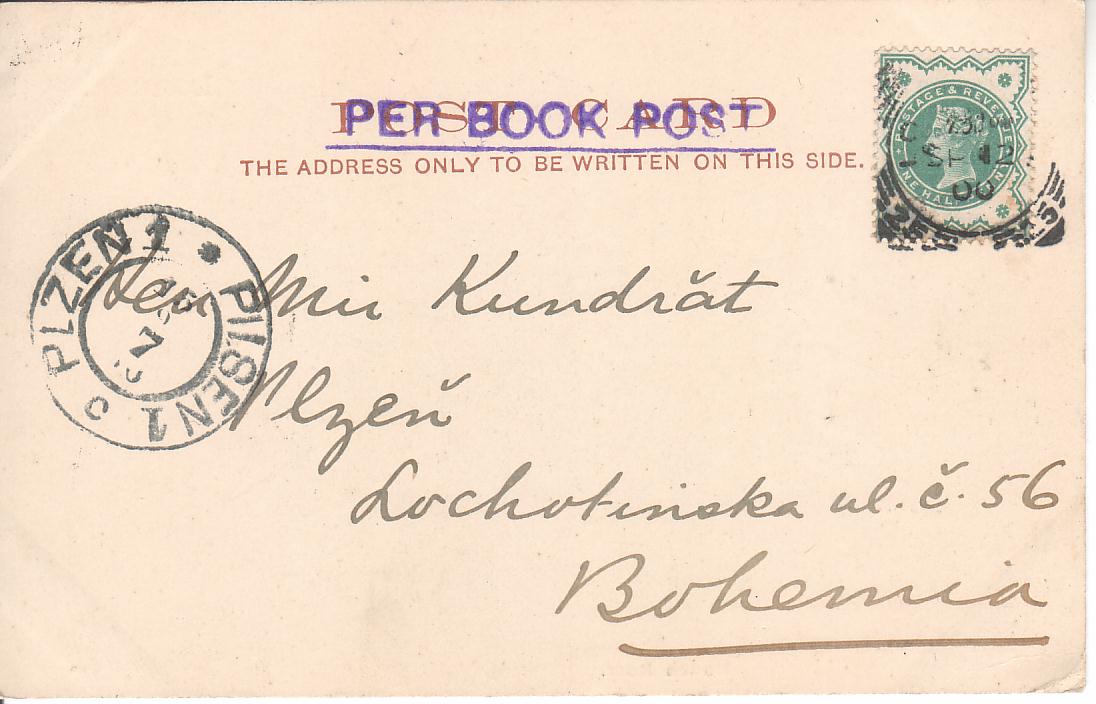 POST CARD
PER BOOK POST
THE ADDRESS ONLY TO BE WRITTEN ON THIS SIDE.
POSTAGE & REVENUE
ONE HALFPENNY
SP 12
00
PLZEN 1 * PILSEN 1
15
9
7
c
Kundrát
Plzeň
Lochotinska ul. č. 56
Bohemia